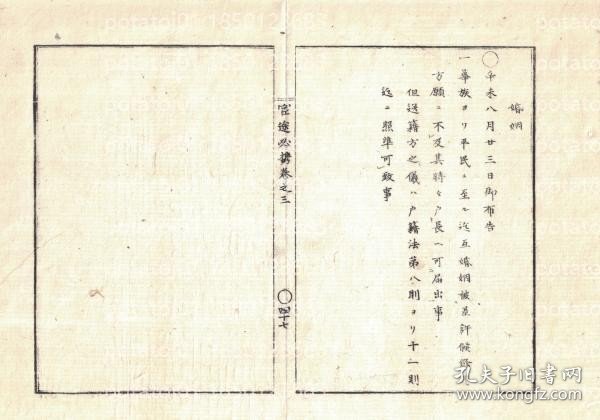 婚姻
○辛未八月廿三日御布告
一華族ヨリ平民ニ至ル迄互婚姻被差許候條
方願ニ不及其時々戸長ヘ可届出事
但送籍方之儀ハ戸籍法第八則ヨリ十一則
迄ニ照準可致事
官途必携巻之三
○四十七
孔夫子旧书网
kongfz.com